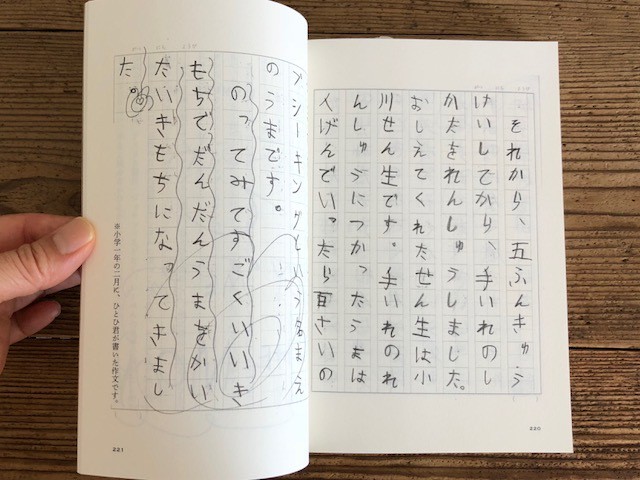 それから、五ふんきゅう
けいしてから、手いれのし
かたをれんしゅうしました。
おしえてくれたせん生は小
川せん生です。手いれのれ
んしゅうにつかったうまは
人げんでいったら百さいの
220
という名まえ
のうまです。
のってみてすごくいいき
もちでだんだんうまをかい
たいきもちになってきまし
た。
※小学一年の二月に、ひとひ君が書いた作文です。
221